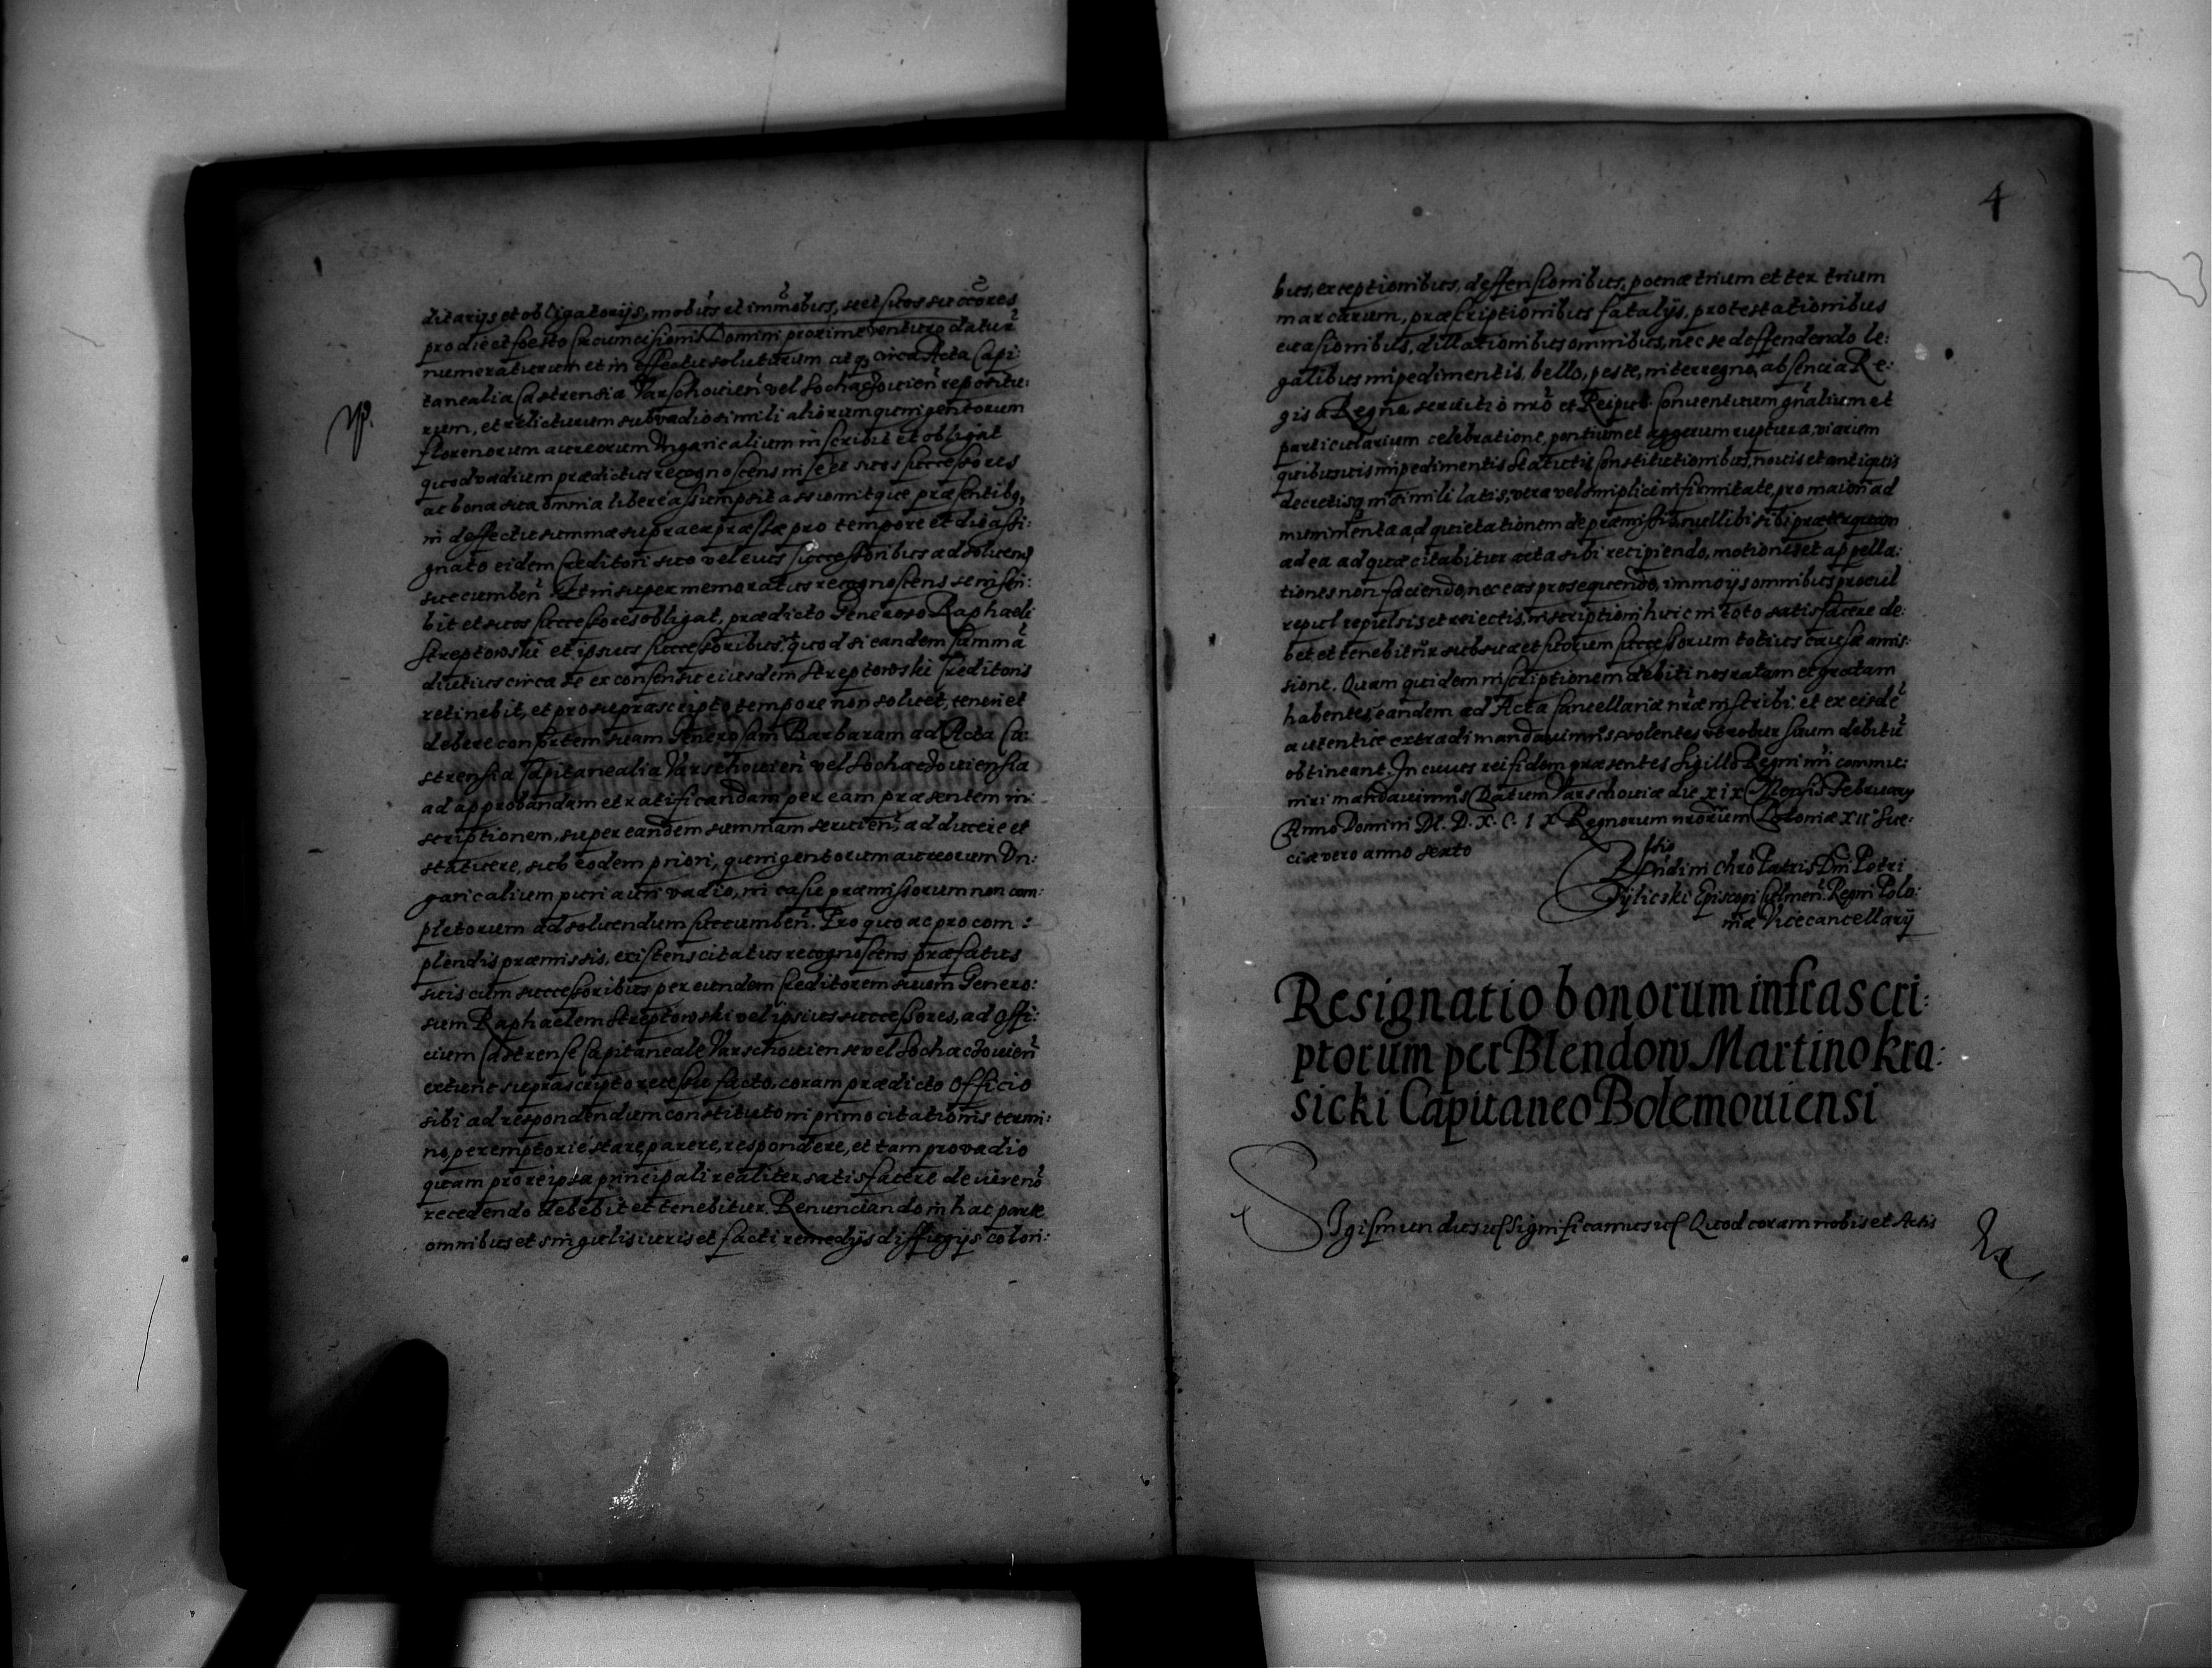 ditarijs et obligatorijs, mobũs et imm̃obus, et suos succcores
pro die et foesto Circumcisionis Domini proxime venturo datur̃
numeraturum et in effectu soluturum atq, circa Acta Capi:
tanealia Castrensia Varschouien̄ vel Sochaczouien̄ repositu:
rum, et relicturum sub vadio simili aliorum quingentorum
florenorum aureorum Vngaricalium inscribit et obligat
quod vadium prædictus recognoscens in se et suos successores
ac bona sua omnia libere assumpsit assumitque præsentibq,
in deffectu summæ supra expræssæ pro tempore et die assi:
gnato eidem Creditori suo vel eius successoribus ad soluend
succumben̄ Et insuper memoratus recognoscens se inscri:
bit et suos successores obligat, prædicto Generoso Raphaeli
Streptowski et ipsius successoribus, quod si eandem summã
diutius circa se ex consensu eiusdem Streptowski Creditoris
retinebit, et pro suprascripto tempore non soluet, teneri et
debere consortem suam Generosam Barbaram ad Acta Ca:
strensia Capitanealia Varschouien̄ vel Sochaczouiensia
ad approbandam et ratificandam per eam præsentem in:
scriptionem, super eandem summam seruien̄, adducere et
statuere, sub eodem priori, quingentorum aureorum Vn:
garicalium puri auri vadio, in casu præmissorum non com:
pletorum ad soluendum succumben̄. Pro quo ac pro com:
plendis præmissis, existens citatus recognoscens præfatus
suis cum successoribus per eundem Creditorem suum Genero:
sum Raphaelem Streptowski vel ipsius successores, ad Offi:
cium Castrense Capitaneale Varschouiense vel Sochaczouien̄
extunc suprascripto recessu facto, coram prædicto Officio
sibi ad respondendum constituto in primo citationis termi:
no, peremptorie stare parere, respondere, et tam pro vadio
quam pro reipsa principali realiter satisfacere de iure nõ
recedendo debebit et tenebitur. Renunciando in hac parte
omnibus et singulis iuris et facti remedijs diffugijs colori:
4
bus, exceptionibus, deffensionibus, poenæ trium et ter trium
marcarum, præscriptionibus fatalijs, protestationibus
euasionibus, dillationibus omnibus, nec se deffendendo le:
galibus impedimentis, bello, peste, interregno, absencia Re:
gis a Regno seruitio nr̃o et Reipub. Conuentuum gñalium et
particularium celebratione, pontium et aggerum ruptura, viarum
quibusuis impedimentis Statutis Constitutionibus, nouis et antiquis
decretisq in simili latis, vera vel simplici infirmitate, pro maiori ad
munimenta ad quietationem de præmissis nullibi sibi præterquam
ad ea ad quæ citabitur acta sibi recipiendo, motiones et appella:
tiones non faciendo, nec eas prosequendo, immo ijs omnibus procul
repul repulsis et reiectis, inscriptioni huic in toto satisfacere de:
bet et tenebitur sub sua et suorum successorum totius causæ amis:
sione. Quam quidem inscriptionem debiti nos ratam et gratam
habentes, eandem ad Acta Cancellariæ nr̃æ inscribi, et ex eisdẽ
autentice extradi mandauimus, volentes vt robur suum debitũ
obtineant. In cuius rei fidem præsentes Sigillo Regni nr̃i commu:
niri mandauimus Datum Varschouiæ die xix Mensis February
Anno Domini M. D. X. C. IX Regnorum nr̃orum Poloniæ XIIº Sue:
ciæ vero anno sexto
Rndi in Chr̃o Patris Dñi Petri
Tylicski Episcopi Culmen̄. Regni Polo:
niæ Vicecancellarij
Resignatio bonorum infrascri:
ptorum per Blendow Martino Kra:
sicki Capitaneo Bolemouiensi
Sigismundus ɛ Significamus ɛ Quod coram nobis et Actis